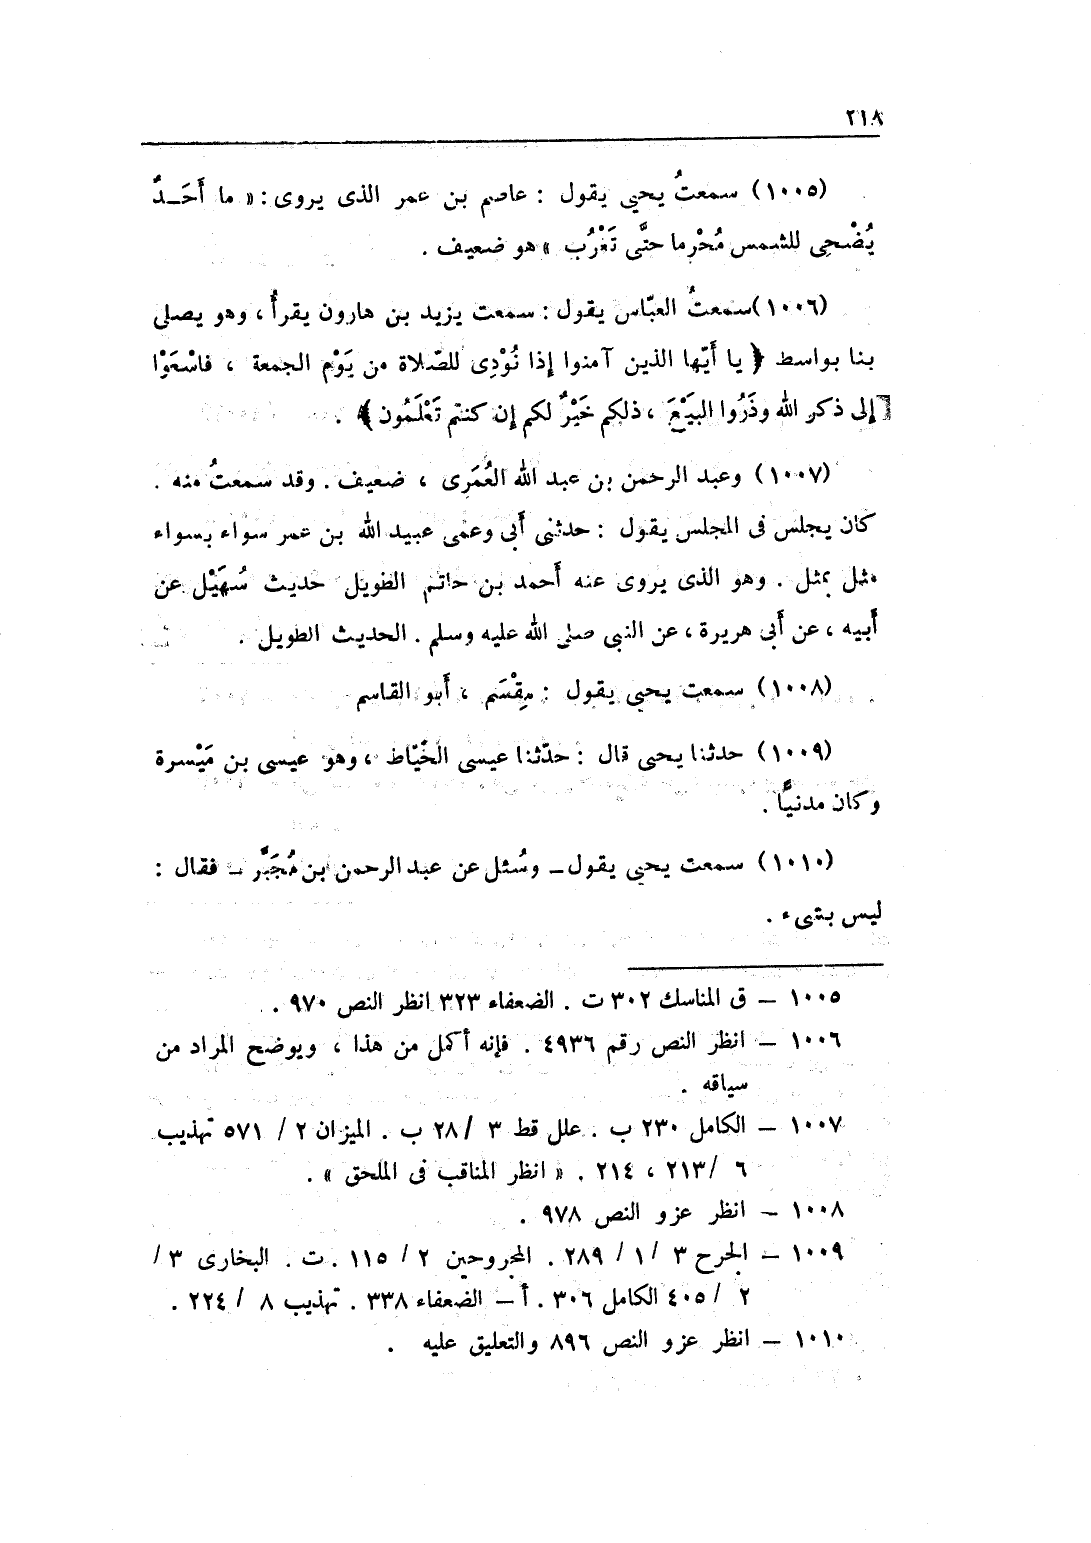 ٢١٨
(١٠٠٥) سمعتُ يحيى يقول : عاصم بن عمر الذى يروى : « ما أَحَـدٌ
يُضْحِى للشمس مُحْرِما حتَّى تَغْرُب » هو ضعيف .
(١٠٠٦) سمعتُ العبّاس يقول : سمعت يزيد بن هارون يقرأُ ، وهو يصلى
بنا بواسط ﴿ يا أَيّها الذين آمنوا إذا نُوْدِى للصّلاة من يَوْمِ الجمعة ، فاسْعَوْا
إلى ذكر الله وذَرُوا البَيْعَ ، ذلكم خَيْرٌ لكم إن كنتم تَعْلَمُون ﴾ .
(١٠٠٧) وعبد الرحمن بن عبد الله العُمَرى ، ضعيف . وقد سمعتُ منه .
كان يجلس فى المجلس يقول : حدثنى أَبى وعمى عبيد الله بن عمر سواء بسواء
مثل بمثل . وهو الذى يروى عنه أحمد بن حاتم الطويل حديث سُهَيْل عن
أَبيه ، عن أَبى هريرة ، عن النبى صلى الله عليه وسلم . الحديث الطويل .
(١٠٠٨) سمعت يحيى يقول : مِقْسَم ، أَبو القاسم
(١٠٠٩) حدثنا يحيى قال : حدّثنا عيسى الخَيّاط ، وهو عيسى بن مَيْسرة
وكان مدنيًّا .
(١٠١٠) سمعت يحيى يقول ــ وسُئل عن عبد الرحمن بن مُجَبَّر ــ فقال :
ليس بشىء .
١٠٠٥ ــ ق المناسك ٣٠٢ ت . الضعفاء ٣٢٣ انظر النص ٩٧٠ .
١٠٠٦ ــ انظر النص رقم ٤٩٣٦ . فإنه أكمل من هذا ، ويوضح المراد من
سياقه .
١٠٠٧ ــ الكامل ٢٣٠ ب . علل قط ٣ / ٢٨ ب . الميزان ٢ / ٥٧١ تهذيب
٦ / ٢١٣ ، ٢١٤ . « انظر المناقب فى الملحق » .
١٠٠٨ ــ انظر عزو النص ٩٧٨ .
١٠٠٩ ــ الجرح ٣ / ١ / ٢٨٩ . المجروحين ٢ / ١١٥ . ت . البخارى ٣ /
٢ / ٤٠٥ الكامل ٣٠٦ . أ ــ الضعفاء ٣٣٨ . تهذيب ٨ / ٢٢٤ .
١٠١٠ ــ انظر عزو النص ٨٩٦ والتعليق عليه .